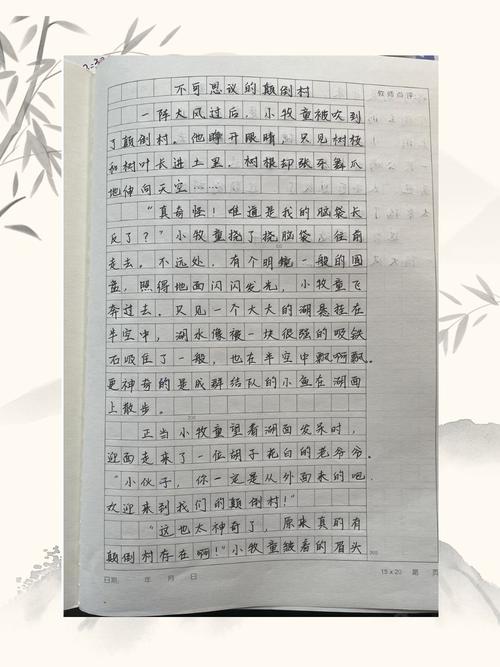 不可思议的颠倒村
教师点评:
一阵大风过后，小牧童被吹到
了颠倒村。他睁开眼睛，只见树枝
和树叶长进土里，树根却张牙舞爪
地伸向天空……
“真奇怪！难道是我的脑袋长
反了？”小牧童挠了挠脑袋，往前
走去。不远处，有个明镜一般的圆
盘，照得地面闪闪发光，小牧童飞
奔过去。只见一个大大的湖悬挂在
半空中，湖水像被一块很强的吸铁
石吸住了一般，也在半空中飘啊飘。
更神奇的是成群结队的小鱼在湖面
上散步。
正当小牧童望着湖面发呆时，
迎面走来了一位胡子花白的老爷爷
“小伙子，你一定是从外面来的吧
欢迎来到我们的颠倒村！”
“这也太神奇了，原来真的有
颠倒村存在啊！”小牧童皱着的眉头
日期: 年 月 日
15×20 第 页